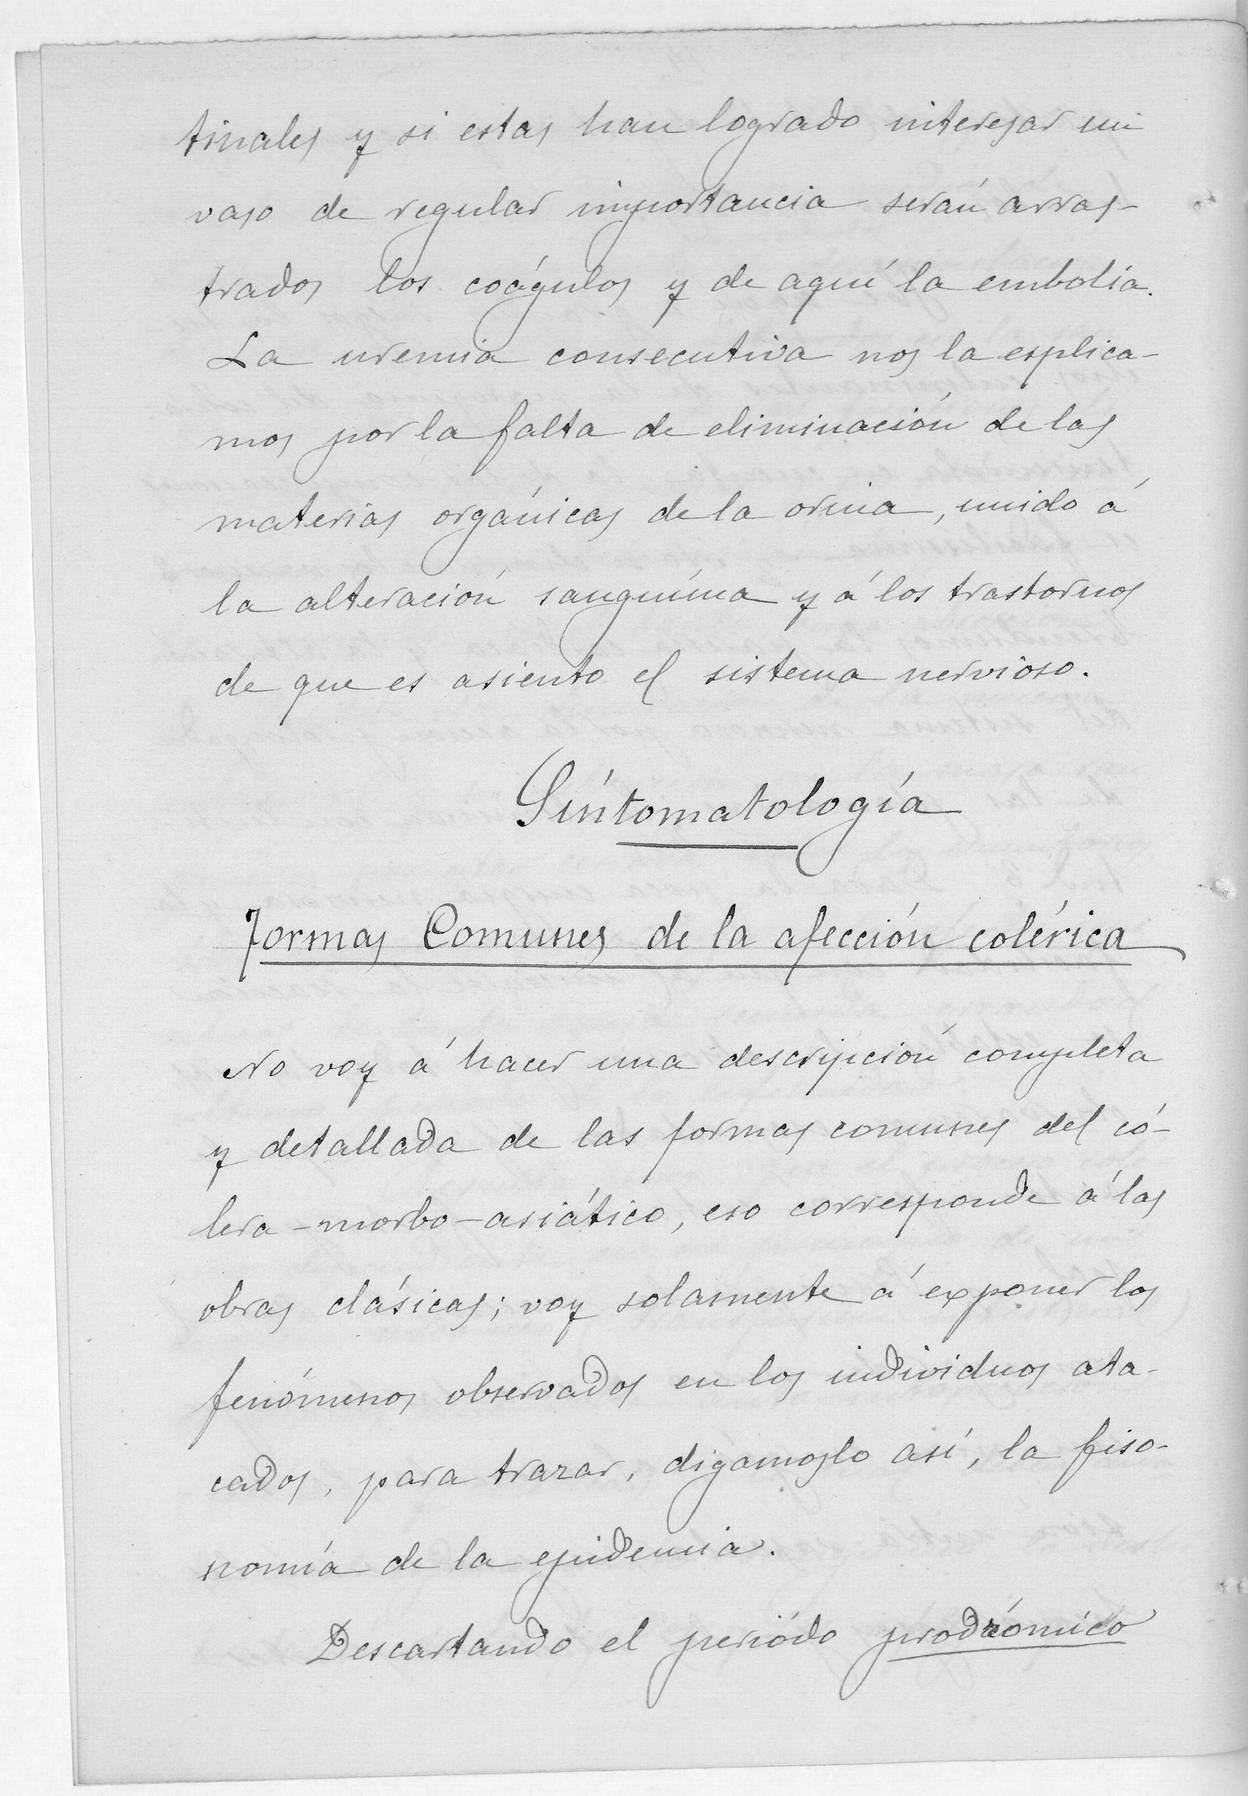 tinales y si estas han logrado interesar un
vaso de regular importancia serán arras-
trados los coágulos y de aquí la embolia.
La uremia consecutiva nos la esplica-
mos por la falta de eliminación de las
materias orgánicas de la orina, unido á
la alteración sanguínea y á los trastornos
de que es asiento el sistema nervioso.
Síntomatología
Formas Comunes de la afección colérica
No voy á hacer una descripción completa
y detallada de las formas comunes del có-
lera-morbo-asiático, eso corresponde á las
obras clásicas; voy solamente á exponer los
fenómenos observados en los individuos ata-
cados, para trazar, digamoslo así, la fiso-
nomía de la epidemia.
Descartando el periódo prodrómico